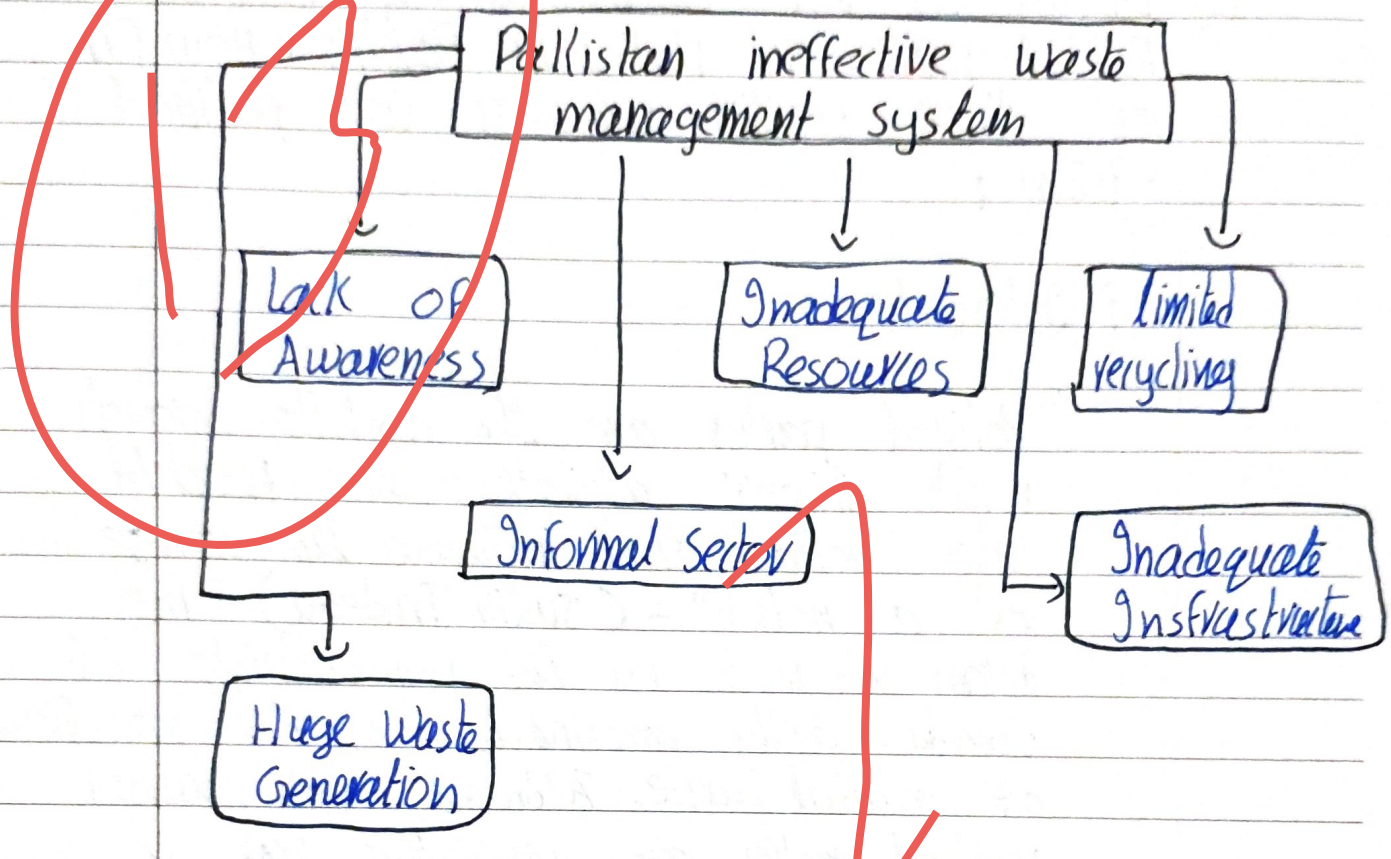 Pakistan ineffective waste
management system
Lack of
Awareness
Inadequate
Resources
limited
recycling
Informal Sector
Inadequate
Insfrastructure
Huge Waste
Generation
13